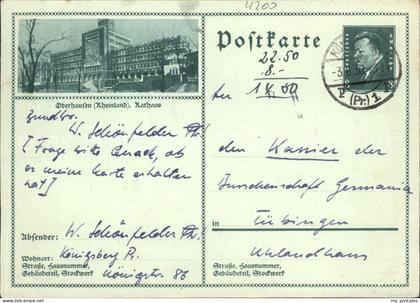 4200
Postkarte
22.50
8.-
14.50
Oberhausen (Rheinland), Rathaus
W. Schönfelder
[Frage bitte Quack, ob
er meine Karte erhalten
hat]
Absender: W. Schönfelder
Wohnort: Königsberg Pr.
Straße, Hausnummer,
Gebäudeteil, Stockwerk
Königstr. 86
An
den Kassier der
Burschenschaft Germania
in Tübingen
Uhlandhaus
Straße, Hausnummer,
Gebäudeteil, Stockwerk
(Pr) 1